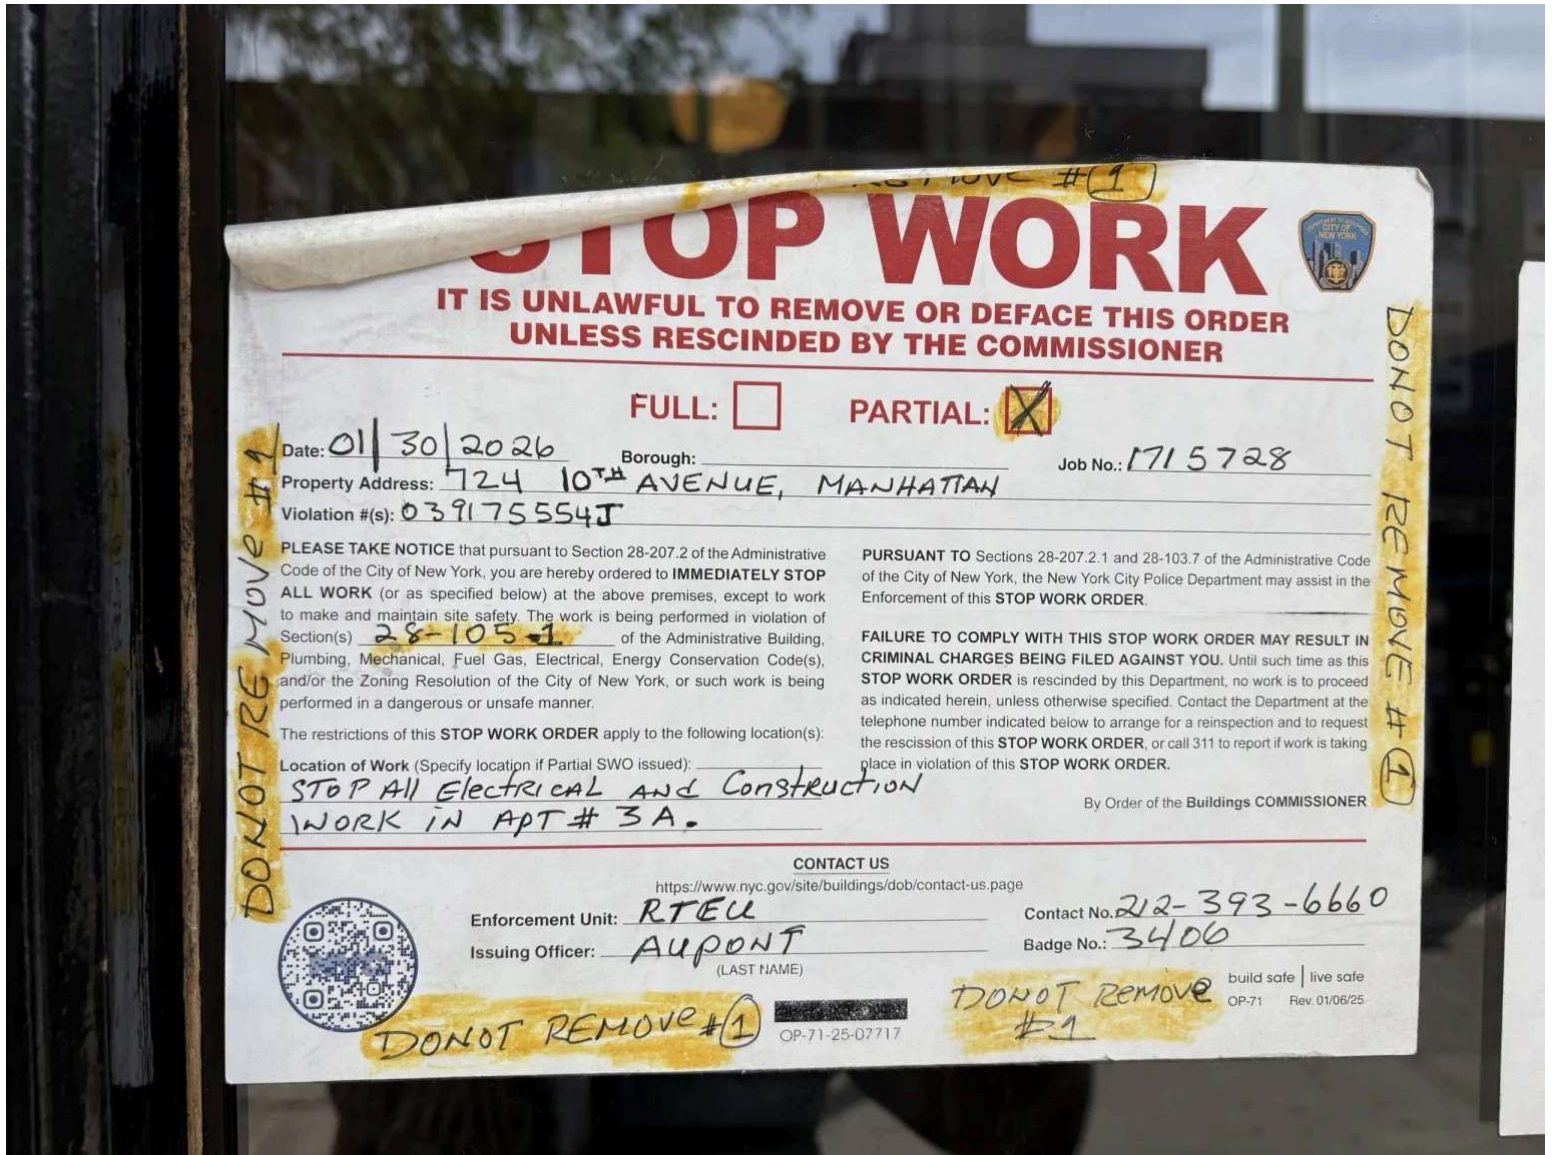 REMOVE # 1
STOP WORK
CITY OF
NEW YORK
IT IS UNLAWFUL TO REMOVE OR DEFACE THIS ORDER
UNLESS RESCINDED BY THE COMMISSIONER
FULL: PARTIAL: X
Date: 01/30/2026 Borough: Job No.: 1715728
Property Address: 724 10TH AVENUE, MANHATTAN
Violation #(s): 039175554J
PLEASE TAKE NOTICE that pursuant to Section 28-207.2 of the Administrative
Code of the City of New York, you are hereby ordered to IMMEDIATELY STOP
ALL WORK (or as specified below) at the above premises, except to work
to make and maintain site safety. The work is being performed in violation of
Section(s) 28-105.1 of the Administrative Building,
Plumbing, Mechanical, Fuel Gas, Electrical, Energy Conservation Code(s),
and/or the Zoning Resolution of the City of New York, or such work is being
performed in a dangerous or unsafe manner.
The restrictions of this STOP WORK ORDER apply to the following location(s):
Location of Work (Specify location if Partial SWO issued):
STOP All ElectRICAL ANd ConstRuctION
WORK iN APT # 3A.
PURSUANT TO Sections 28-207.2.1 and 28-103.7 of the Administrative Code
of the City of New York, the New York City Police Department may assist in the
Enforcement of this STOP WORK ORDER.
FAILURE TO COMPLY WITH THIS STOP WORK ORDER MAY RESULT IN
CRIMINAL CHARGES BEING FILED AGAINST YOU. Until such time as this
STOP WORK ORDER is rescinded by this Department, no work is to proceed
as indicated herein, unless otherwise specified. Contact the Department at the
telephone number indicated below to arrange for a reinspection and to request
the rescission of this STOP WORK ORDER, or call 311 to report if work is taking
place in violation of this STOP WORK ORDER.
By Order of the Buildings COMMISSIONER
DO NOT REMOVE # 1
DO NOT REMOVE # 1
CONTACT US
https://www.nyc.gov/site/buildings/dob/contact-us.page
Enforcement Unit: RTEU Contact No. 212-393-6660
Issuing Officer: AUPONT Badge No.: 3406
(LAST NAME)
build safe | live safe
OP-71 Rev. 01/06/25
DO NOT REMOVe # 1
OP-71-25-07717
DO NOT REMOVe
# 1